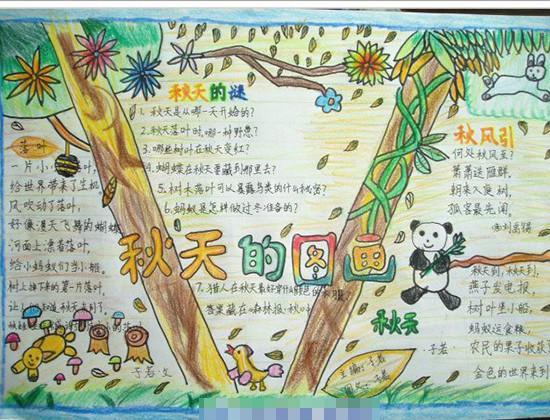 秋天的图画
落叶
一片小小落叶,
给世界带来了生机,
风吹动了落叶,
好像漫天飞舞的蝴蝶
河面上漂着落叶,
给小蚂蚁们当小船。
树上掉下来的第一片落叶,
让
知道秋天来到了。
于若·文
秋天的谜
1. 秋天是从哪一天开始的?
2. 秋天落叶时,哪一种野
3. 哪些树叶在秋天变红?
4. 蝴蝶在秋天要藏到哪里去?
5. 树木落叶可以暴露鸟类的什么秘密?
6. 蚂蚁是怎样做过冬准备的?
7. 猎人在秋天最好穿什么颜色的衣服
答案藏在《森林报·秋》
秋风引
何处秋风至?
萧萧送雁群。
朝来入庭树,
孤客最先闻。
唐 刘禹锡
秋天
秋天到,秋天到,
燕子发电报,
树叶坐小船,
蚂蚁运食粮,
农民的果子收获
金色的世界来到
于若
主编:于若